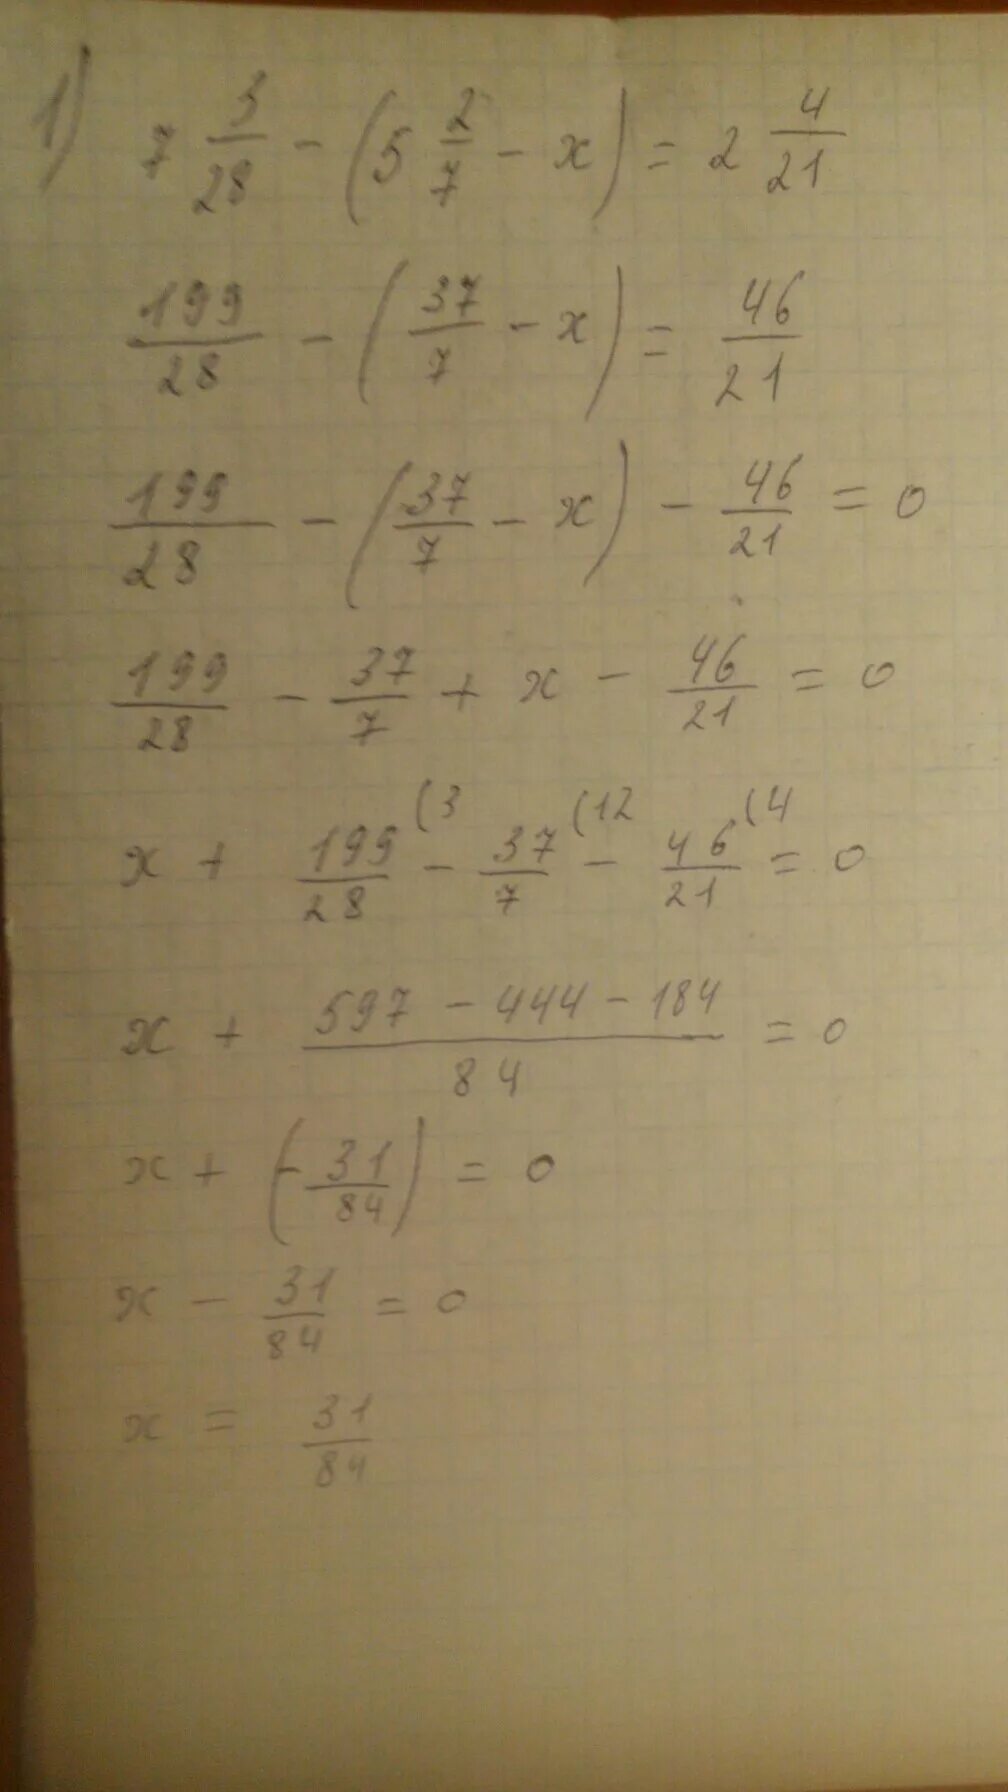 1) 7 3/28 - (5 2/7 - x) = 2 4/21
199/28 - (37/7 - x) = 46/21
199/28 - (37/7 - x) - 46/21 = 0
199/28 - 37/7 + x - 46/21 = 0
x + 199/28 (3 - 37/7 (12 - 46/21 (4 = 0
x + (597 - 444 - 184)/84 = 0
x + (-31/84) = 0
x - 31/84 = 0
x = 31/84